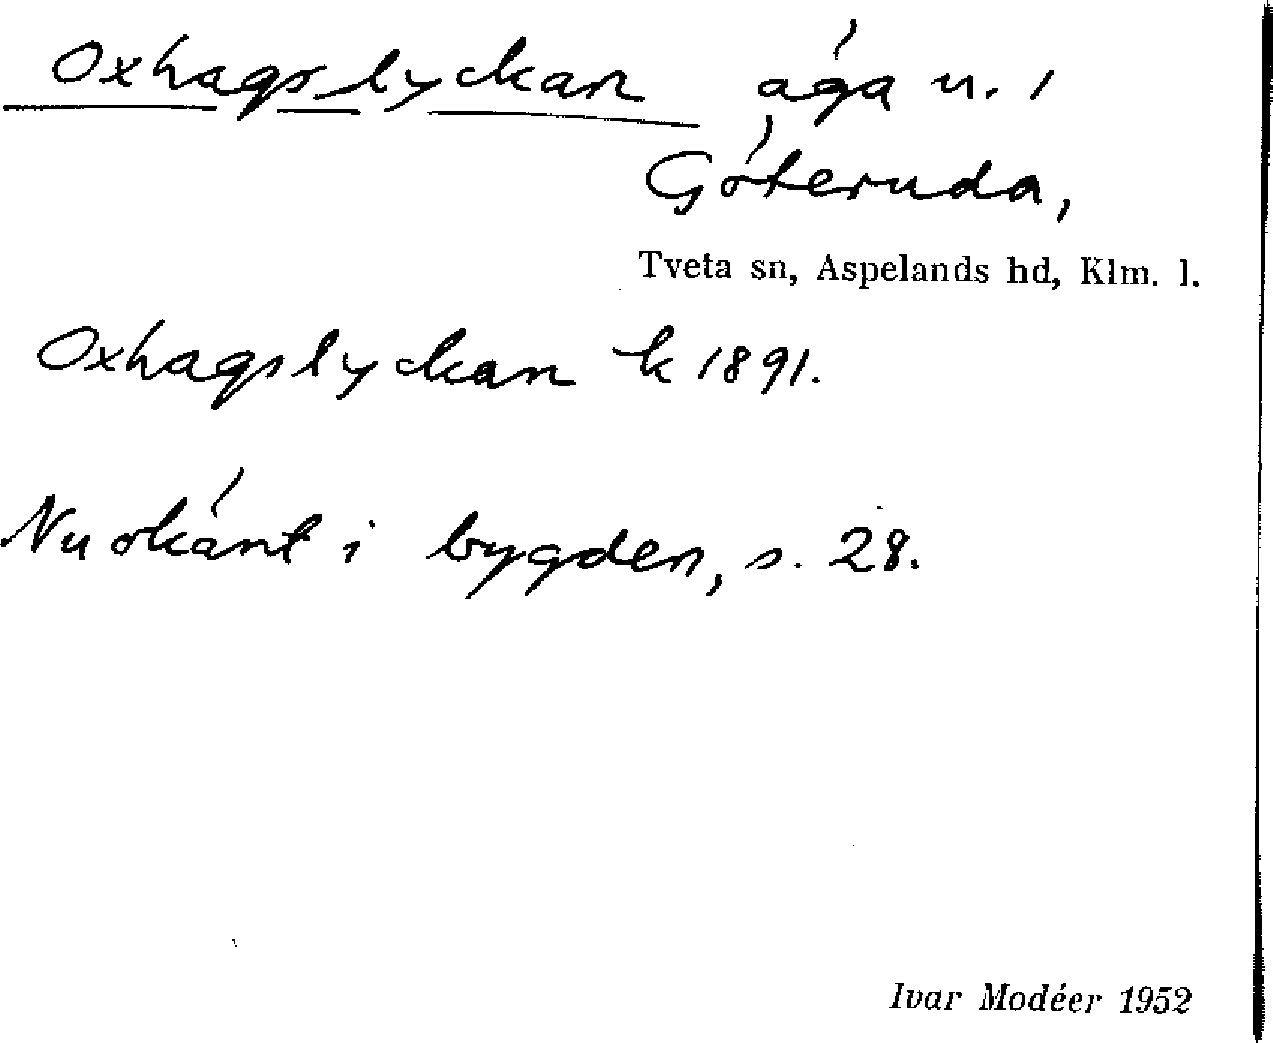 Oxhagslyckan äga u. 1
Göteruda,
Tveta sn, Aspelands hd, Klm. l.
Oxhagslyckan k 1891.
Nu okänt i bygden, s. 28.
Ivar Modéer 1952